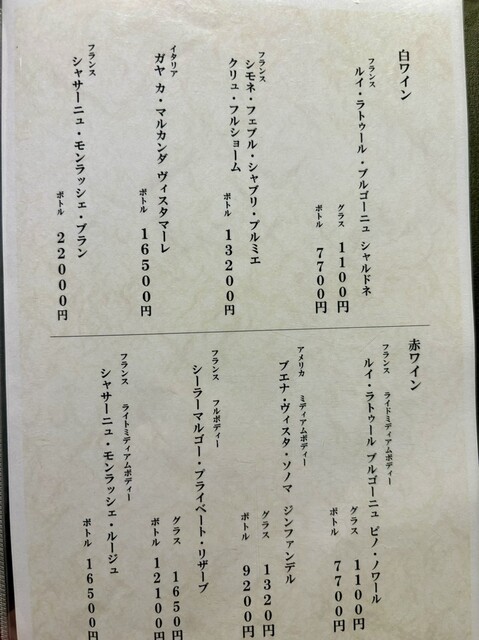 白ワイン
フランス
ルイ・ラトゥール・ブルゴーニュ シャルドネ
グラス 1100円
ボトル 7700円
フランス
シモネ・フェブル・シャブリ・プルミエ
クリュ・フルショーム
ボトル 13200円
イタリア
ガヤ カ・マルカンダ ヴィスタマーレ
ボトル 16500円
フランス
シャサーニュ・モンラッシェ・ブラン
ボトル 22000円
赤ワイン
フランス ライトミディアムボディー
ルイ・ラトゥール ブルゴーニュ ピノ・ノワール
グラス 1100円
ボトル 7700円
アメリカ ミディアムボディー
ブエナ・ヴィスタ・ソノマ ジンファンデル
グラス 1320円
ボトル 9200円
フランス フルボディー
シーラーマルゴー・プライベート・リザーブ
グラス 1650円
ボトル 12100円
フランス ライトミディアムボディー
シャサーニュ・モンラッシェ・ルージュ
ボトル 16500円